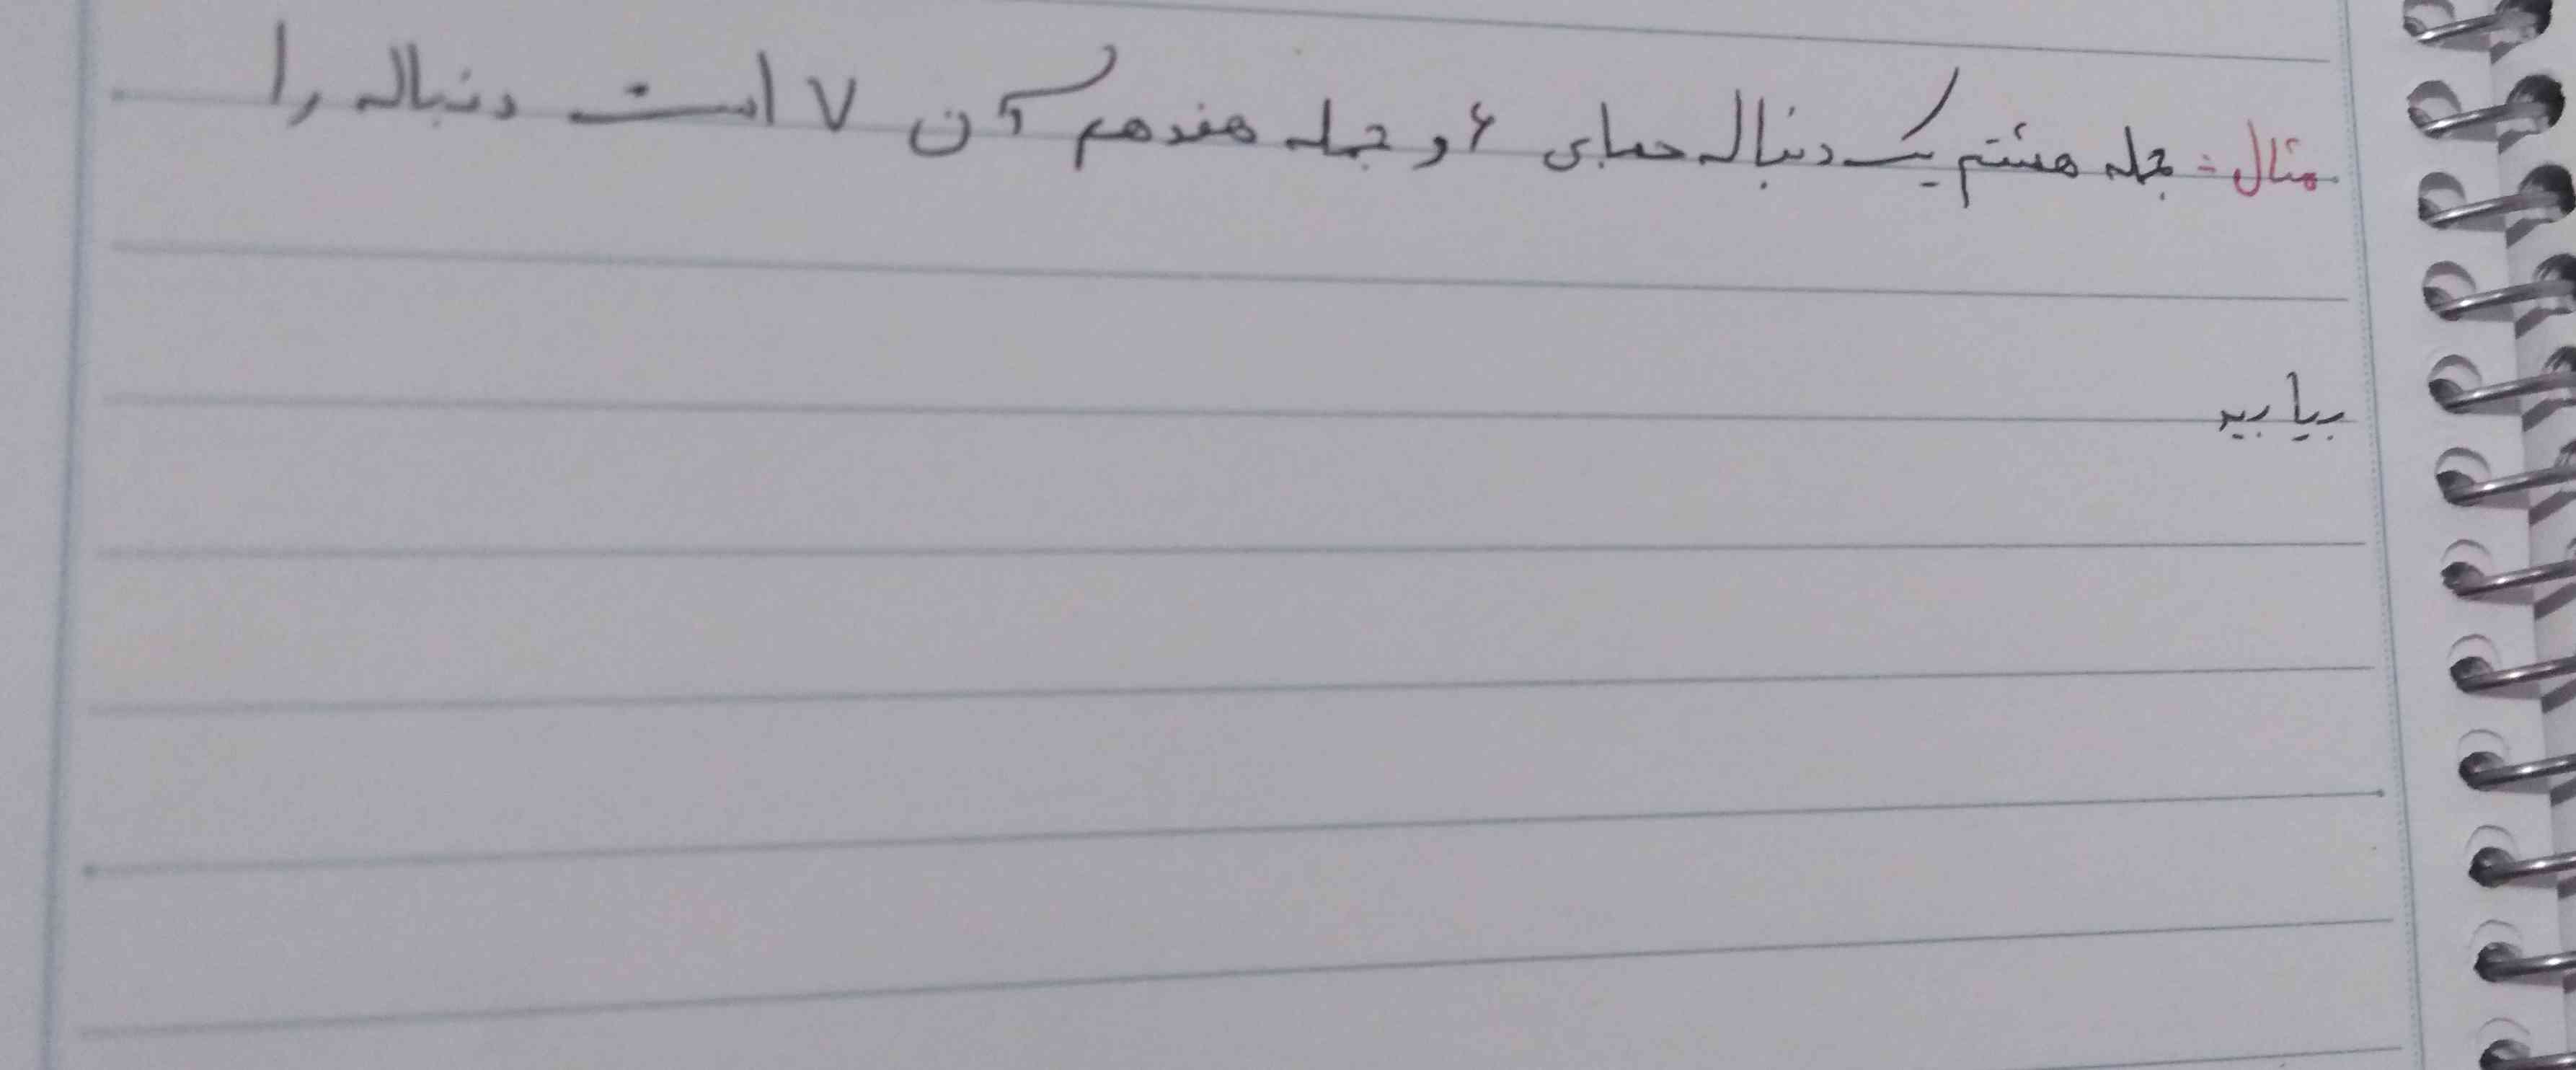 مثال: جمله هشتم یک دنباله حسابی ۶ و جمله هفدهم آن ۷ است دنباله را
بیابید